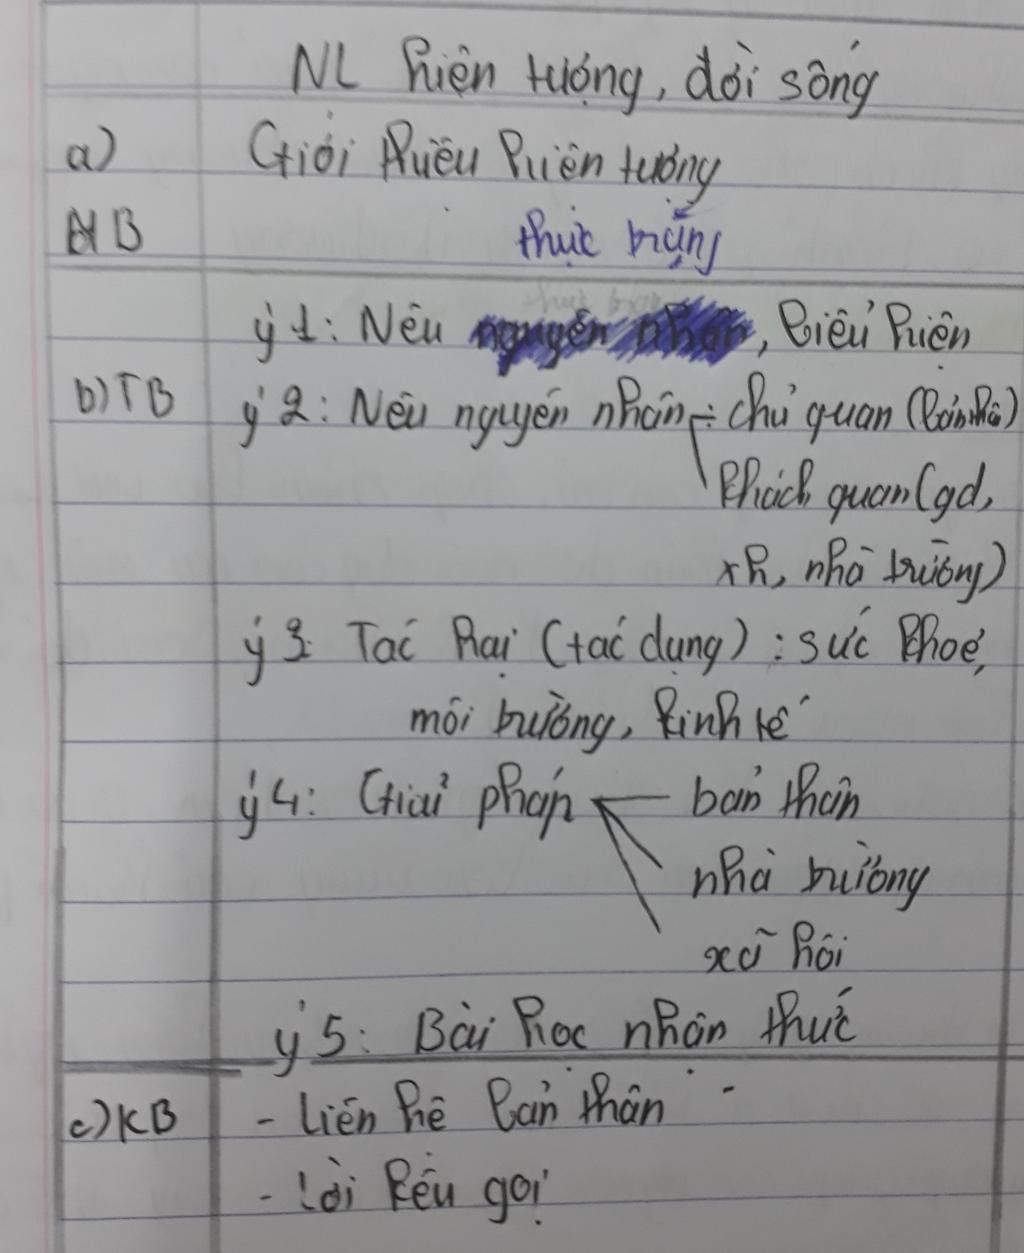 NL hiện tượng, đời sống
a) Giới thiệu hiện tượng
MB thực trạng
ý 1: Nêu nguyên nhân, biểu hiện
b) TB ý 2: Nêu nguyên nhân: chủ quan (bản thân)
khách quan (gđ,
xh, nhà trường)
ý 3: Tác hại (tác dụng): sức khoẻ,
môi trường, kinh tế
ý 4: Giải pháp bản thân
nhà trường
xã hội
ý 5: Bài học nhận thức
c) KB - Liên hệ bản thân
- Lời kêu gọi